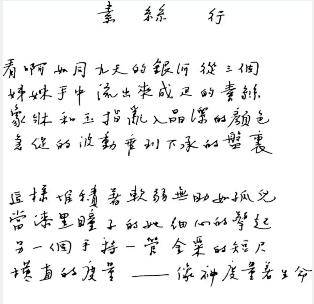 素絲行
看啊如同九天的銀河從三個
姊妹手中流出來成疋的素絲
象牙和玉指亂入晶深的顏色
急促的波動垂到下承的盤裏
這樣堆積著軟弱無助如孤兒
當漆黑瞳子的她細心的拳起
另一個手持一管金栗的短尺
橫直的度量——像神度量著生命